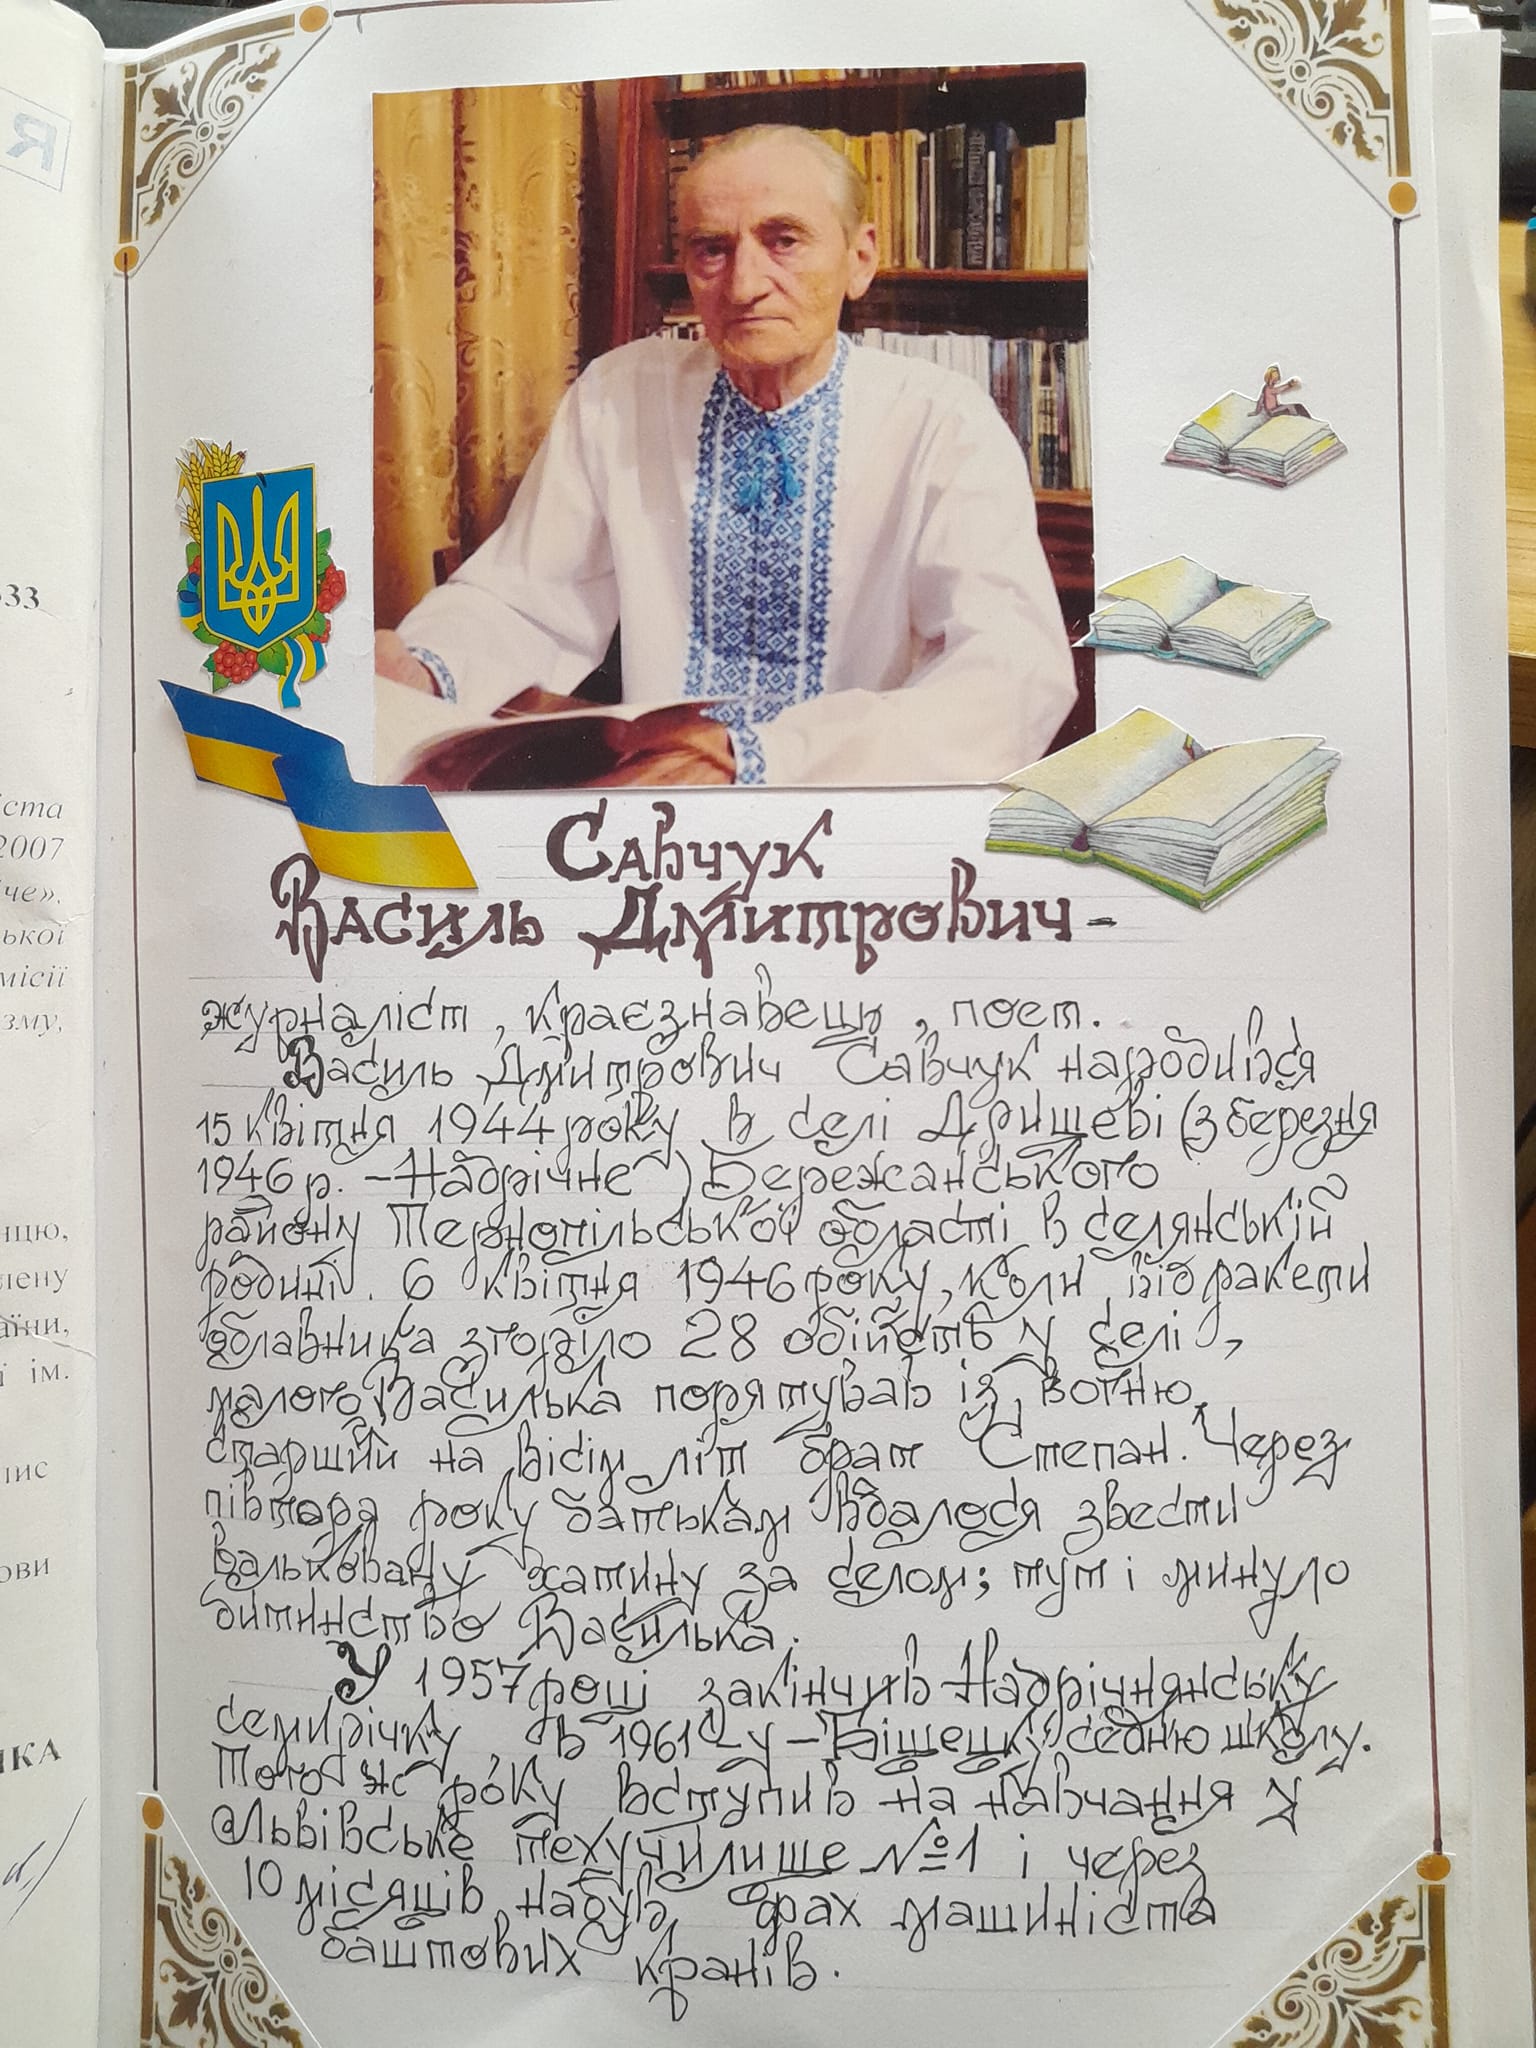 Савчук
Василь Дмитрович -
журналіст, краєзнавець, поет.
Василь Дмитрович Савчук народився
15 квітня 1944 року в селі Дрищеві (з березня
1946 р. - Надрічне) Бережанського
району Тернопільської області в селянській
родині. 6 квітня 1946 року, коли від ракети
облавника згоріло 28 обійсть у селі,
малого Василька порятував із вогню
старший на вісім літ брат Степан. Через
півтора року батькам вдалося звести
вальковану хатину за селом; тут і минуло
дитинство Василька.
У 1957 році закінчив Надрічнянську
семирічку, в 1961 - у - Біщецьку середню школу.
Того ж року вступив на навчання у
Львівське техучилище №1 і через
10 місяців набув фах машиніста
баштових кранів.
533
іста
2007
іче».
ької
місії
зму,
нцю,
лену
аїни,
ї ім.
пис
ови
ИКА